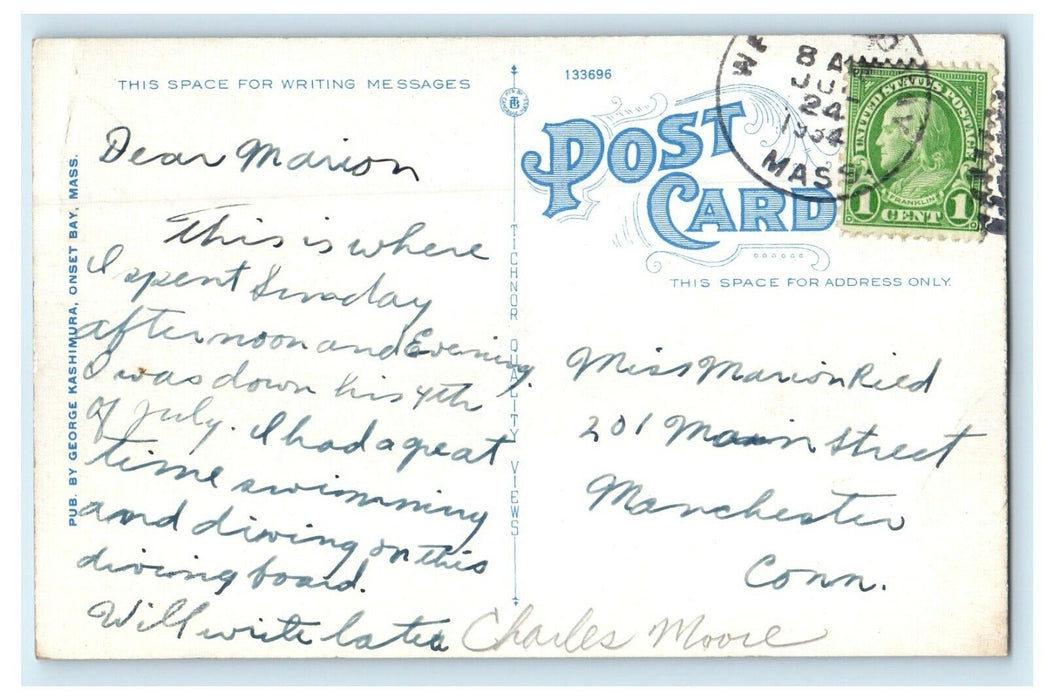 THIS SPACE FOR WRITING MESSAGES
133696
Dear Marion
This is where
I spent Sunday
afternoon and Evening.
I was down his 4th
of July. I had a great
time swimming
and diving on this
diving board.
Will write later
Charles Moore
PUB. BY GEORGE KASHIMURA, ONSET BAY, MASS.
TICHNOR QUALITY VIEWS
POST
CARD
8 AM
JUL
24
1934
MASS.
UNITED STATES POSTAGE
FRANKLIN
1 CENT 1
THIS SPACE FOR ADDRESS ONLY.
Miss Marion Ried
201 Main Street
Manchester
Conn.